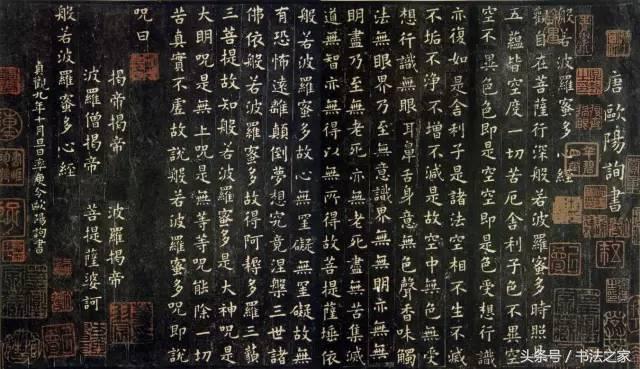 唐歐陽詢書
般若波羅蜜多心經
觀自在菩薩行深般若波羅蜜多時照見
五蘊皆空度一切苦厄舍利子色不異空
空不異色色即是空空即是色受想行識
亦復如是舍利子是諸法空相不生不滅
不垢不淨不增不減是故空中無色無受
想行識無眼耳鼻舌身意無色聲香味觸
法無眼界乃至無意識界無無明亦無無
明盡乃至無老死亦無老死盡無苦集滅
道無智亦無得以無所得故菩提薩埵依
般若波羅蜜多故心無罣礙無罣礙故無
有恐怖遠離顛倒夢想究竟涅槃三世諸
佛依般若波羅蜜多故得阿耨多羅三藐
三菩提故知般若波羅蜜多是大神呪是
大明呪是無上呪是無等等呪能除一切
苦真實不虛故說般若波羅蜜多呪即說
呪曰
揭帝揭帝 波羅揭帝
波羅僧揭帝 菩提薩婆訶
般若波羅蜜多心經
貞觀九年十月旦日率更令歐陽詢書
头条号 / 书法之家